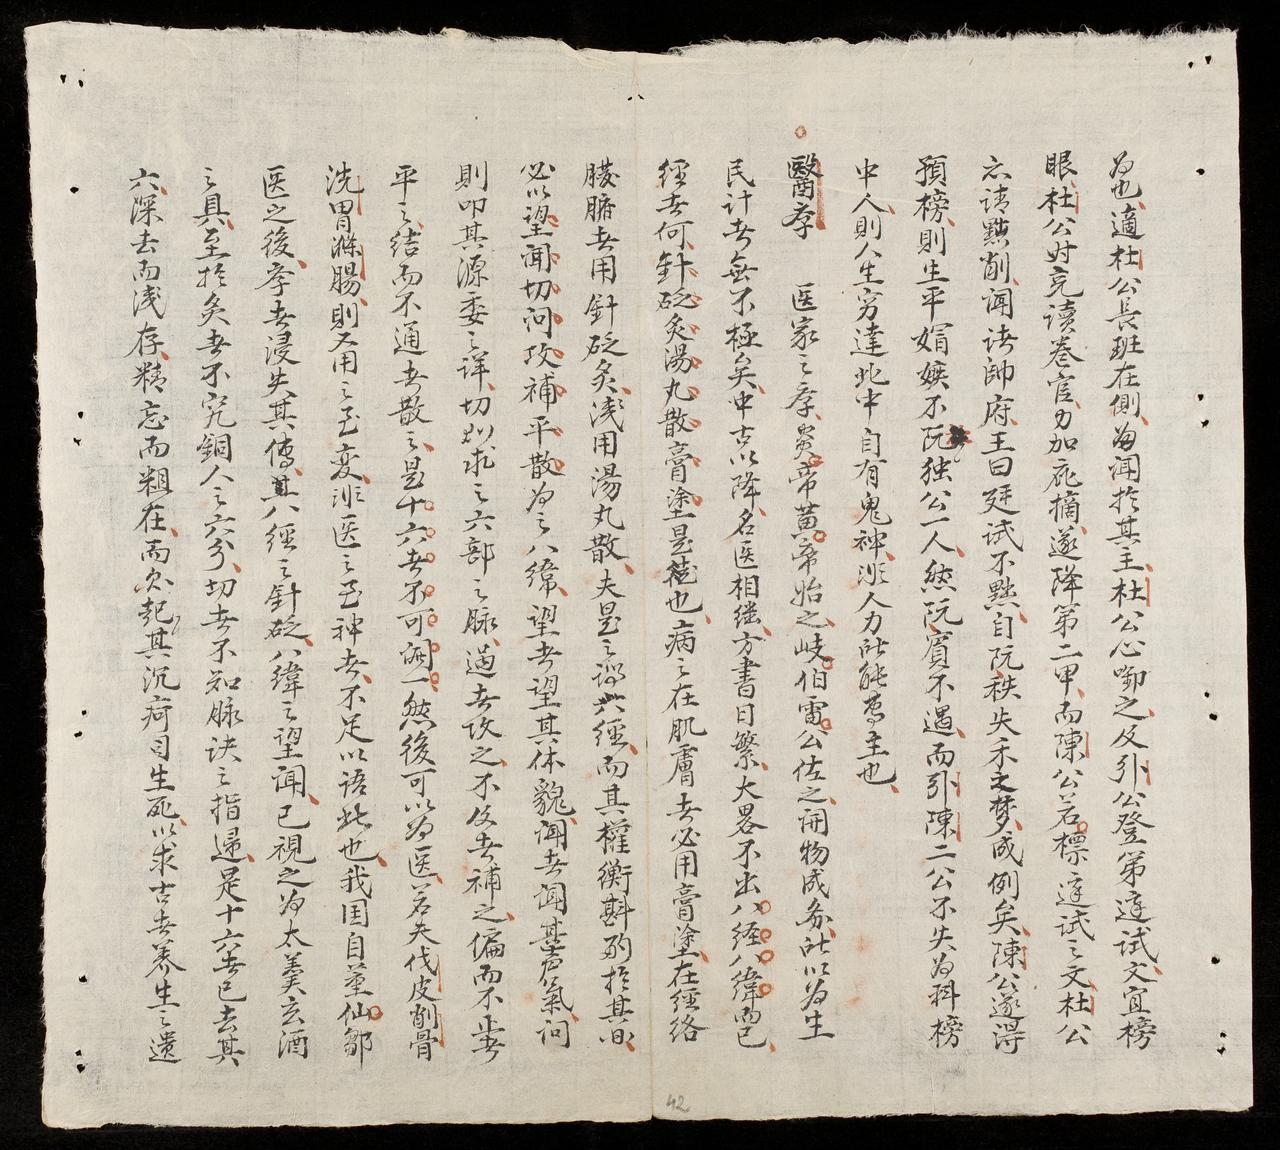 為也適杜公長班在側為聞於其主杜公心啣之及引公登第廷試文宜榜
眼杜公时充讀卷官力加疵摘遂降第二甲而陳公若標廷試之文杜公
亦請黜削聞諸帥府王曰廷試不黜自阮秩失禾之梦成例矣陳公遂得
預榜則生平媢嫉不阮独公一人然阮賓不遇而引陳二公不失为科榜
中人則人生穷達此中自有鬼神非人力所能為主也
醫孝 医家之孝炎帝黃帝始之岐伯雷公佐之開物成务所以为生
民計者無不極矣中古以降名医相継方書日繁大畧不出八経八緯而已
經者何針砭灸湯丸散膏塗是䓁也病之在肌膚者必用膏塗在經络
臟腑者用針砭灸湯用湯丸散夫是之謂八經而其權衡斟酌於其间
必以望聞切问攻補平散為之八緯望者望其体貌聞者聞其声氣问
則叩其源委之详切以求之六部之脉過者攻之不及者補之偏而不正者
平之结而不通者散之是十六者不可闕一然後可以为医若夫伐皮削骨
洗胃滌腸則又用之至变非医之至神者不足以语此也我国自董仙鄒
医之後孝者浸失其傳其八經之針砭八緯之望聞已視之为太羹玄酒
之具至於灸者不究銅人之六分切者不知脉诀之指歸是十六者已去其
六深去而浅存精忘而粗在而欲起其沉疴司生死以求古者养生之遗
42